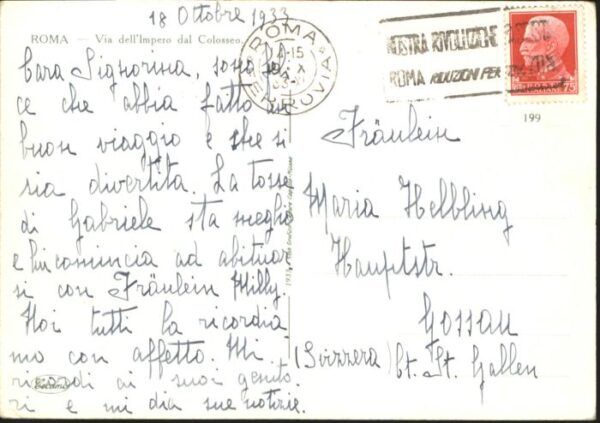 18 Ottobre 1933
ROMA – Via dell'Impero dal Colosseo.
Cara Signorina, sono feli
ce che abbia fatto un
buon viaggio e che si
sia divertita. La tosse
di Gabriele sta meglio
e lui comincia ad abituar
si con Fräulein Milly.
Noi tutti la ricordia
mo con affetto. Mi
ricordi ai suoi genito
ri e mi dia sue notizie.
ROMA
FERROVIA
MOSTRA RIVOLUZIONE
ROMA RIDUZIONI FER
75
199
Fräulein
Maria Helbling
Hauptstr.
Gossau
(Svizzera) Ct. St. Gallen